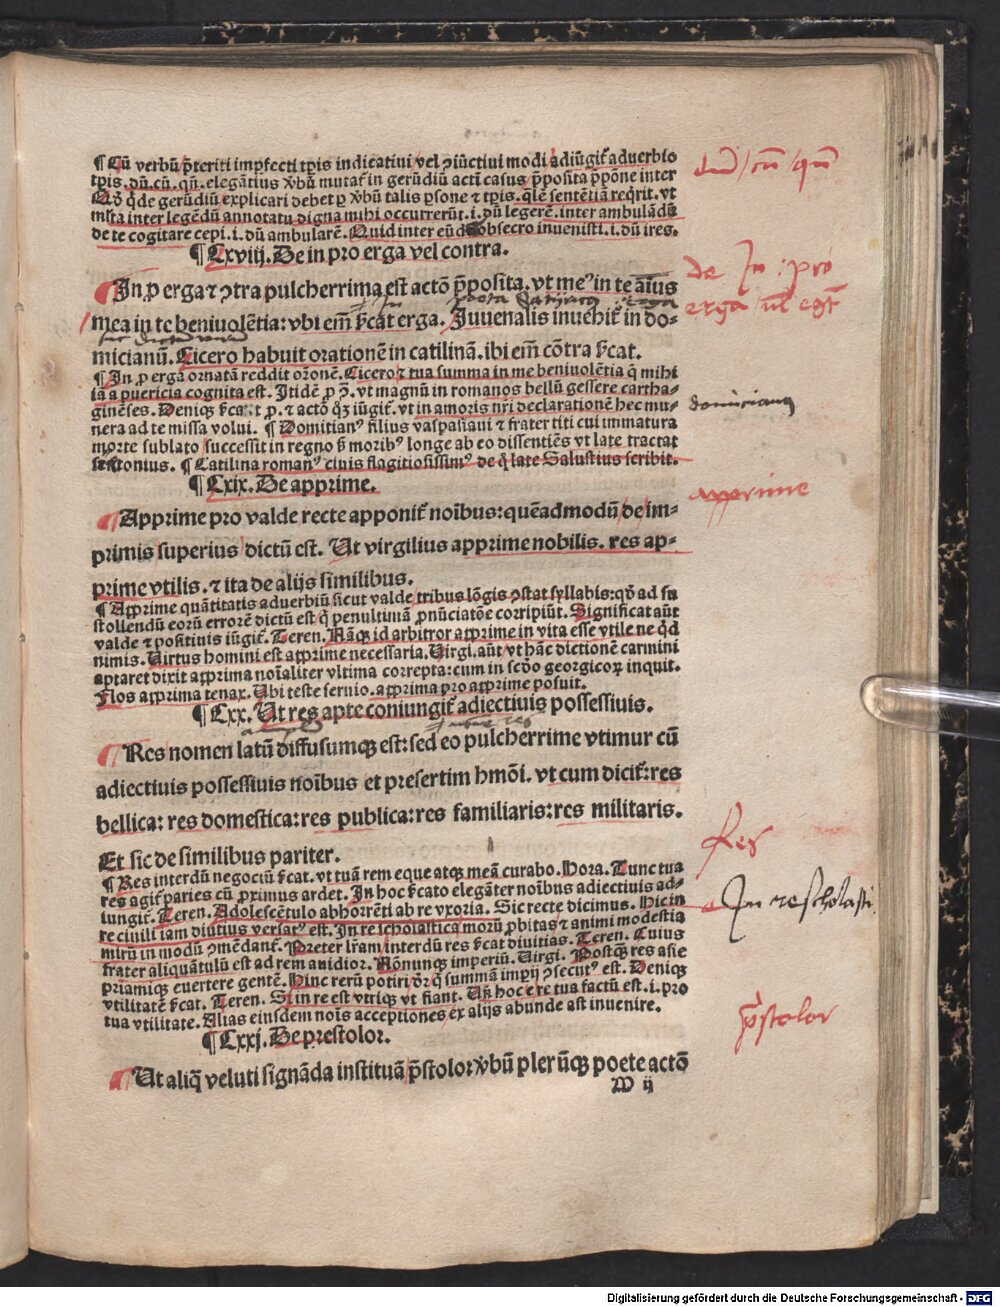 ¶ Cū verbū p̄teriti imperfecti tꝑis indicatiui vel ↄiūctiui modi adiūgit᷑ aduerbio
tꝑis. dū. cū. qn̄. elegātius v̓bū mutat᷑ in gerūdiū acti casus p̄posita p̄pōne inter
Qd̓ qͥde gerūdiū explicari debet ꝑ v̓bū talis ꝑsone ⁊ tꝑis. qlē sentētia reqͥrit. vt
inter legēdū annotatu digna mihi occurrerūt. i. dū legerē. inter ambulādū
de te cogitare cepi. i. dū ambularē. Quid inter eūdū obsecro inuenisti. i. dū ires.
¶ Cxviij. De in pro erga vel contra.
In ꝓ erga ⁊ ↄtra pulcherrima est actō p̄posita. vt meꝰ in te aīus
mea in te beniuolētia: vbi em̄ s̓cat erga. Juuenalis inuehit᷑ in do⸗
micianū. Cicero habuit orationē in catilinā. ibi em̄ cōtra s̓cat.
¶ In ꝓ erga ornatā reddit or̄onē. Cicero ⁊ tua summa in me beniuolētia q̄ mihi
iā a puericia cognita est. Itidē ꝓ ↄ̄. vt magnū in romanos bellū gessere cartha⸗
ginēses. Deniqꝫ s̓cat ꝓ. ⁊ actō qꝫ iūgit᷑. vt in amoris nr̄i declarationē hec mu⸗
nera ad te missa volui. ¶ Domitianꝰ filius vaspasiani ⁊ frater titi cui immatura
morte sublato successit in regno s̓ moribꝰ longe ab eo dissentiēs vt late tractat
suetonius. ¶ Catilina romanꝰ ciuis flagitiosissimꝰ de q̊ late Salustius scribit.
¶ Cxix. De apprime.
Apprime pro valde recte apponit᷑ noībus: quēadmodū de im⸗
primis superius dictū est. Ut virgilius apprime nobilis. res ap⸗
prime vtilis. ⁊ ita de alijs similibus.
¶ Apprime quātitatis aduerbiū sicut valde tribus lōgis ↄstat syllabis: qd̓ ad su
stollendū eorū errorē dictū est q̇ penultimā ꝓnūciatōe corripiūt. Significat aūt
valde ⁊ positiuis iūgit᷑. Teren. Nāqꝫ id arbitror apprime in vita esse vtile ne qͥd
nimis. Uirtus homini est apprime necessaria. Uirgi. aūt vt hāc dictionē carmini
aptaret dixit apprima noīaliter vltima correpta: cum in scd̓o georgicoꝝ inquit.
Flos apprima tenax. Ubi teste seruio. apprima pro apprime posuit.
¶ Cxx. Ut res apte coniungit᷑ adiectiuis possessiuis.
Res nomen latū diffusumqꝫ est: sed eo pulcherrime vtimur cū
adiectiuis possessiuis noībus et presertim hmōi. vt cum dicit᷑: res
bellica: res domestica: res publica: res familiaris: res militaris.
Et sic de similibus pariter.
¶ Res interdū negociū s̓cat. vt tuā rem eque atqꝫ meā curabo. Hora. Tunc tua
res agit᷑ paries cū ꝓximus ardet. In hoc s̓cato elegāter noībus adiectiuis ad⸗
iungit᷑. Teren. Adolescētulo abhorrēti ab re vxoria. Sic recte dicimus. Hic in
re ciuili iam diutius versatꝰ est. In re scholastica morū ꝓbitas ⁊ animi modestia
mirū in modū ↄmēdant᷑. Preter lr̄am interdū res s̓cat diuitias. Teren. Cuius
frater aliquātulū est ad rem auidior. Nōnunqꝫ imperiū. Uirgi. Postqꝫ res asie
priamiqꝫ euertere gentē. Hinc rerū potiri dr̄ q̇ summā imperij ↄsecutꝰ est. Deniqꝫ
vtilitatē s̓cat. Teren. Si in re est vtriqꝫ vt fiant. Un̄ hoc e re tua factū est. i. pro
tua vtilitate. Alias eiusdem nois acceptiones ex alijs abunde ast inuenire.
¶ Cxxj. De prestolor.
Ut aliqͥd veluti signāda instituā p̄stolor v̓bū plerūqꝫ poete actō
M ij
dum / cū / qn̄
de In : pro
erga vl egr̄
domicianꝰ
apprime
Res
In re scholasti
p̄stolor
Digitalisierung gefördert durch die Deutsche Forschungsgemeinschaft - DFG